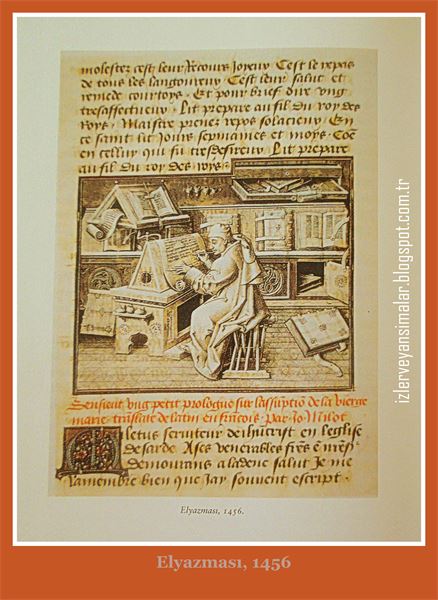 molester cest leur Recours Joyeux Cest le repos
de tous les langoureux Cest leur salut et
remede courtoys · Et pour brief dire vng
tresaffectueux · Lit prepare au fil du roy des
Roys · Maistre prenez repos solacieux En
ce saint lit Jours sepmaines et moys · Coē
en celluy qui fu tresdesireux Lit prepare
au fil du roy des roys ·
Sensieut vng petit prologue sur lassūptiō de la vierge
marie translate de latin en francois · Par Jo Milot
Miletus seruiteur de ihūcrist en leglise
de sarde A ses venerables frēs
demourans a salut Je me
Ramembre bien que Jay souuent escript ·
Elyazması, 1456.
izlerveyansimalar.blogspot.com.tr
Elyazması, 1456